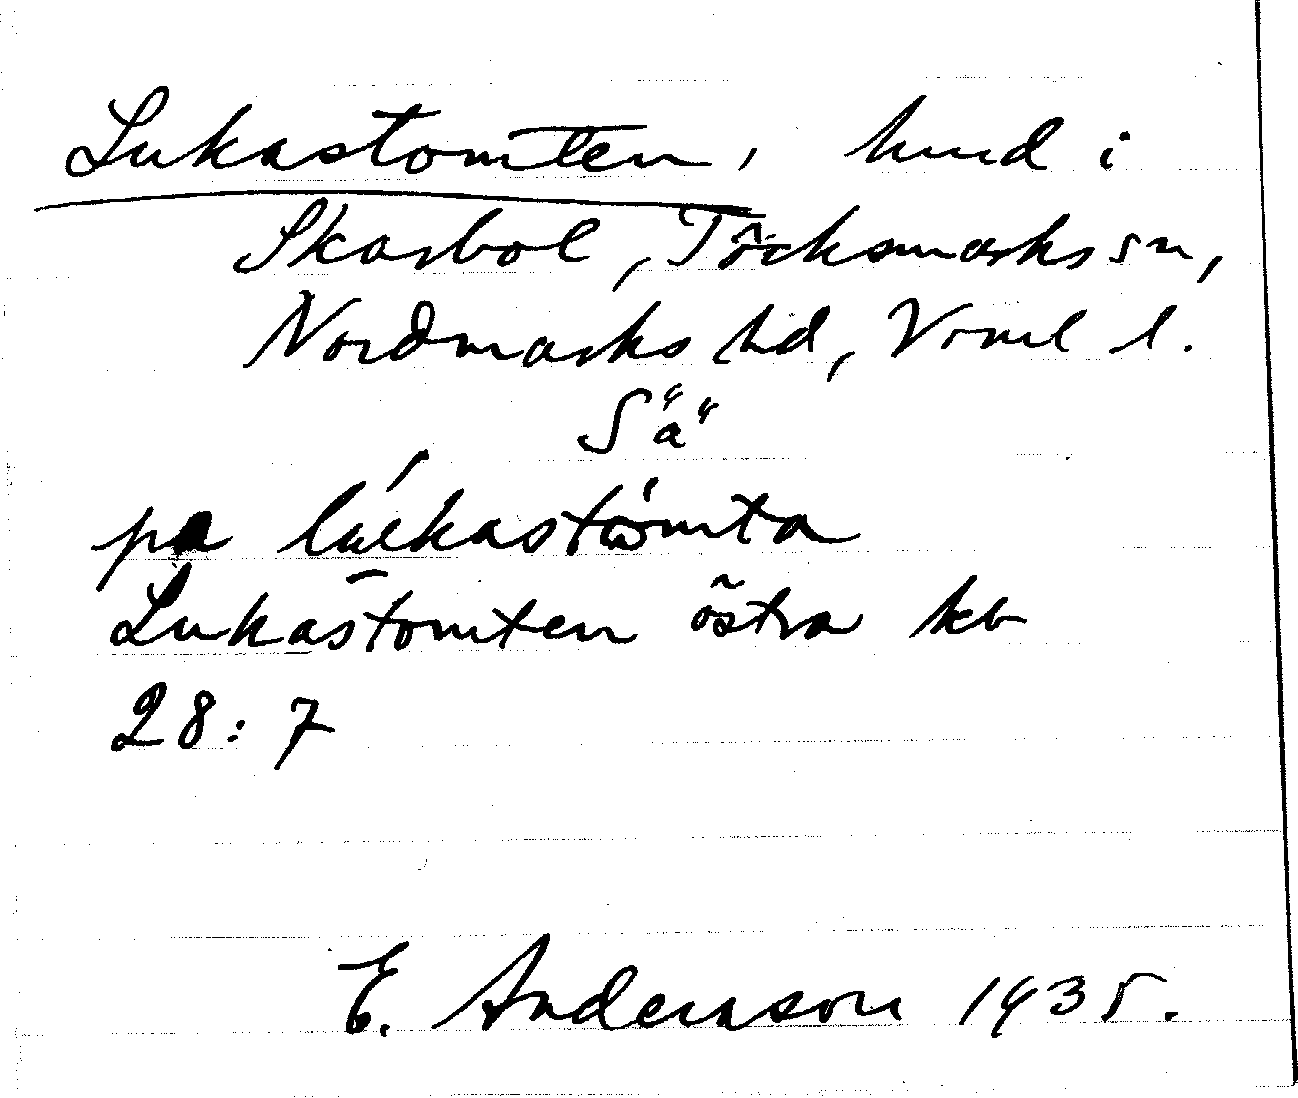 Lukastomten, hmd i
Skarbol, Töcksmarks sn,
Nordmarks hd, Vrml l.
S"a"
pa lukastomta
Lukastomten östra kb
28:7
E. Andersson 1935.